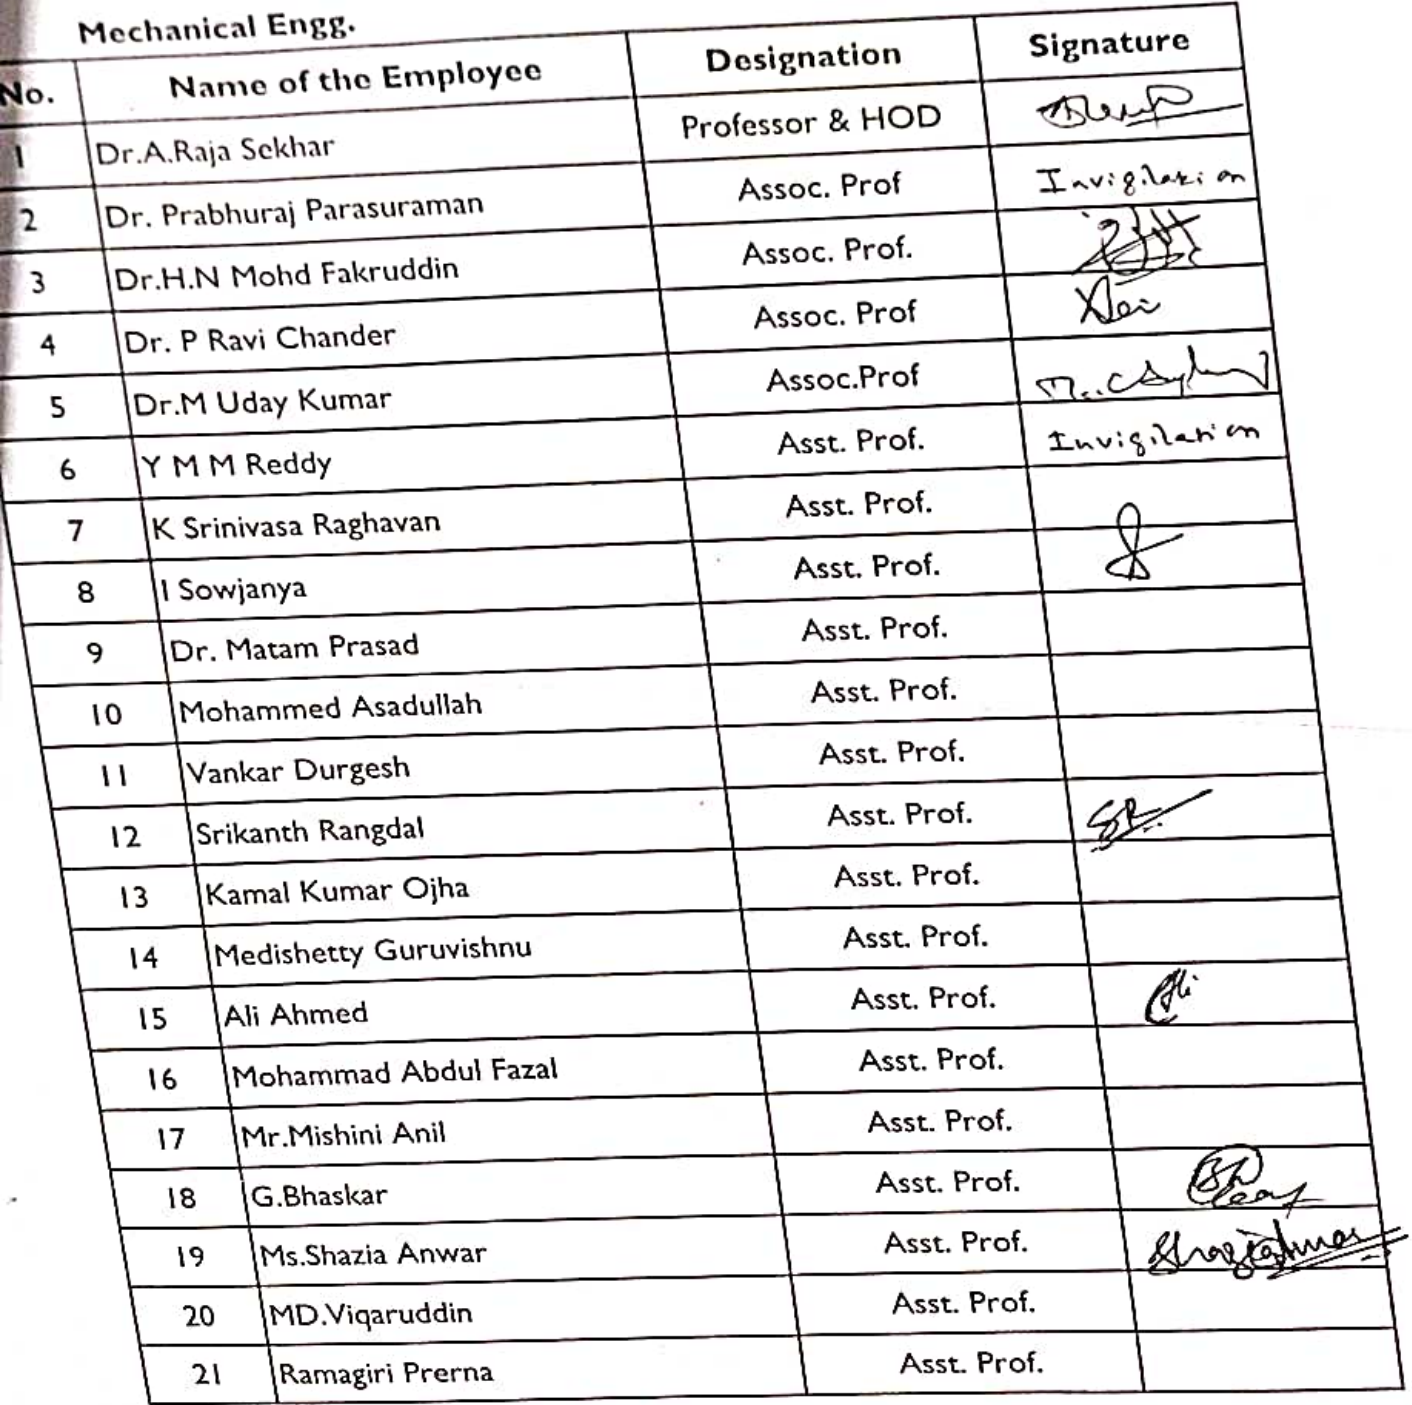 Mechanical Engg.
No. Name of the Employee Designation Signature
1 Dr.A.Raja Sekhar Professor & HOD
2 Dr. Prabhuraj Parasuraman Assoc. Prof Invigilation
3 Dr.H.N Mohd Fakruddin Assoc. Prof.
4 Dr. P Ravi Chander Assoc. Prof
5 Dr.M Uday Kumar Assoc.Prof
6 Y M M Reddy Asst. Prof. Invigilation
7 K Srinivasa Raghavan Asst. Prof.
8 I Sowjanya Asst. Prof.
9 Dr. Matam Prasad Asst. Prof.
10 Mohammed Asadullah Asst. Prof.
11 Vankar Durgesh Asst. Prof.
12 Srikanth Rangdal Asst. Prof.
13 Kamal Kumar Ojha Asst. Prof.
14 Medishetty Guruvishnu Asst. Prof.
15 Ali Ahmed Asst. Prof. Ali
16 Mohammad Abdul Fazal Asst. Prof.
17 Mr.Mishini Anil Asst. Prof.
18 G.Bhaskar Asst. Prof.
19 Ms.Shazia Anwar Asst. Prof.
20 MD.Viqaruddin Asst. Prof.
21 Ramagiri Prerna Asst. Prof.